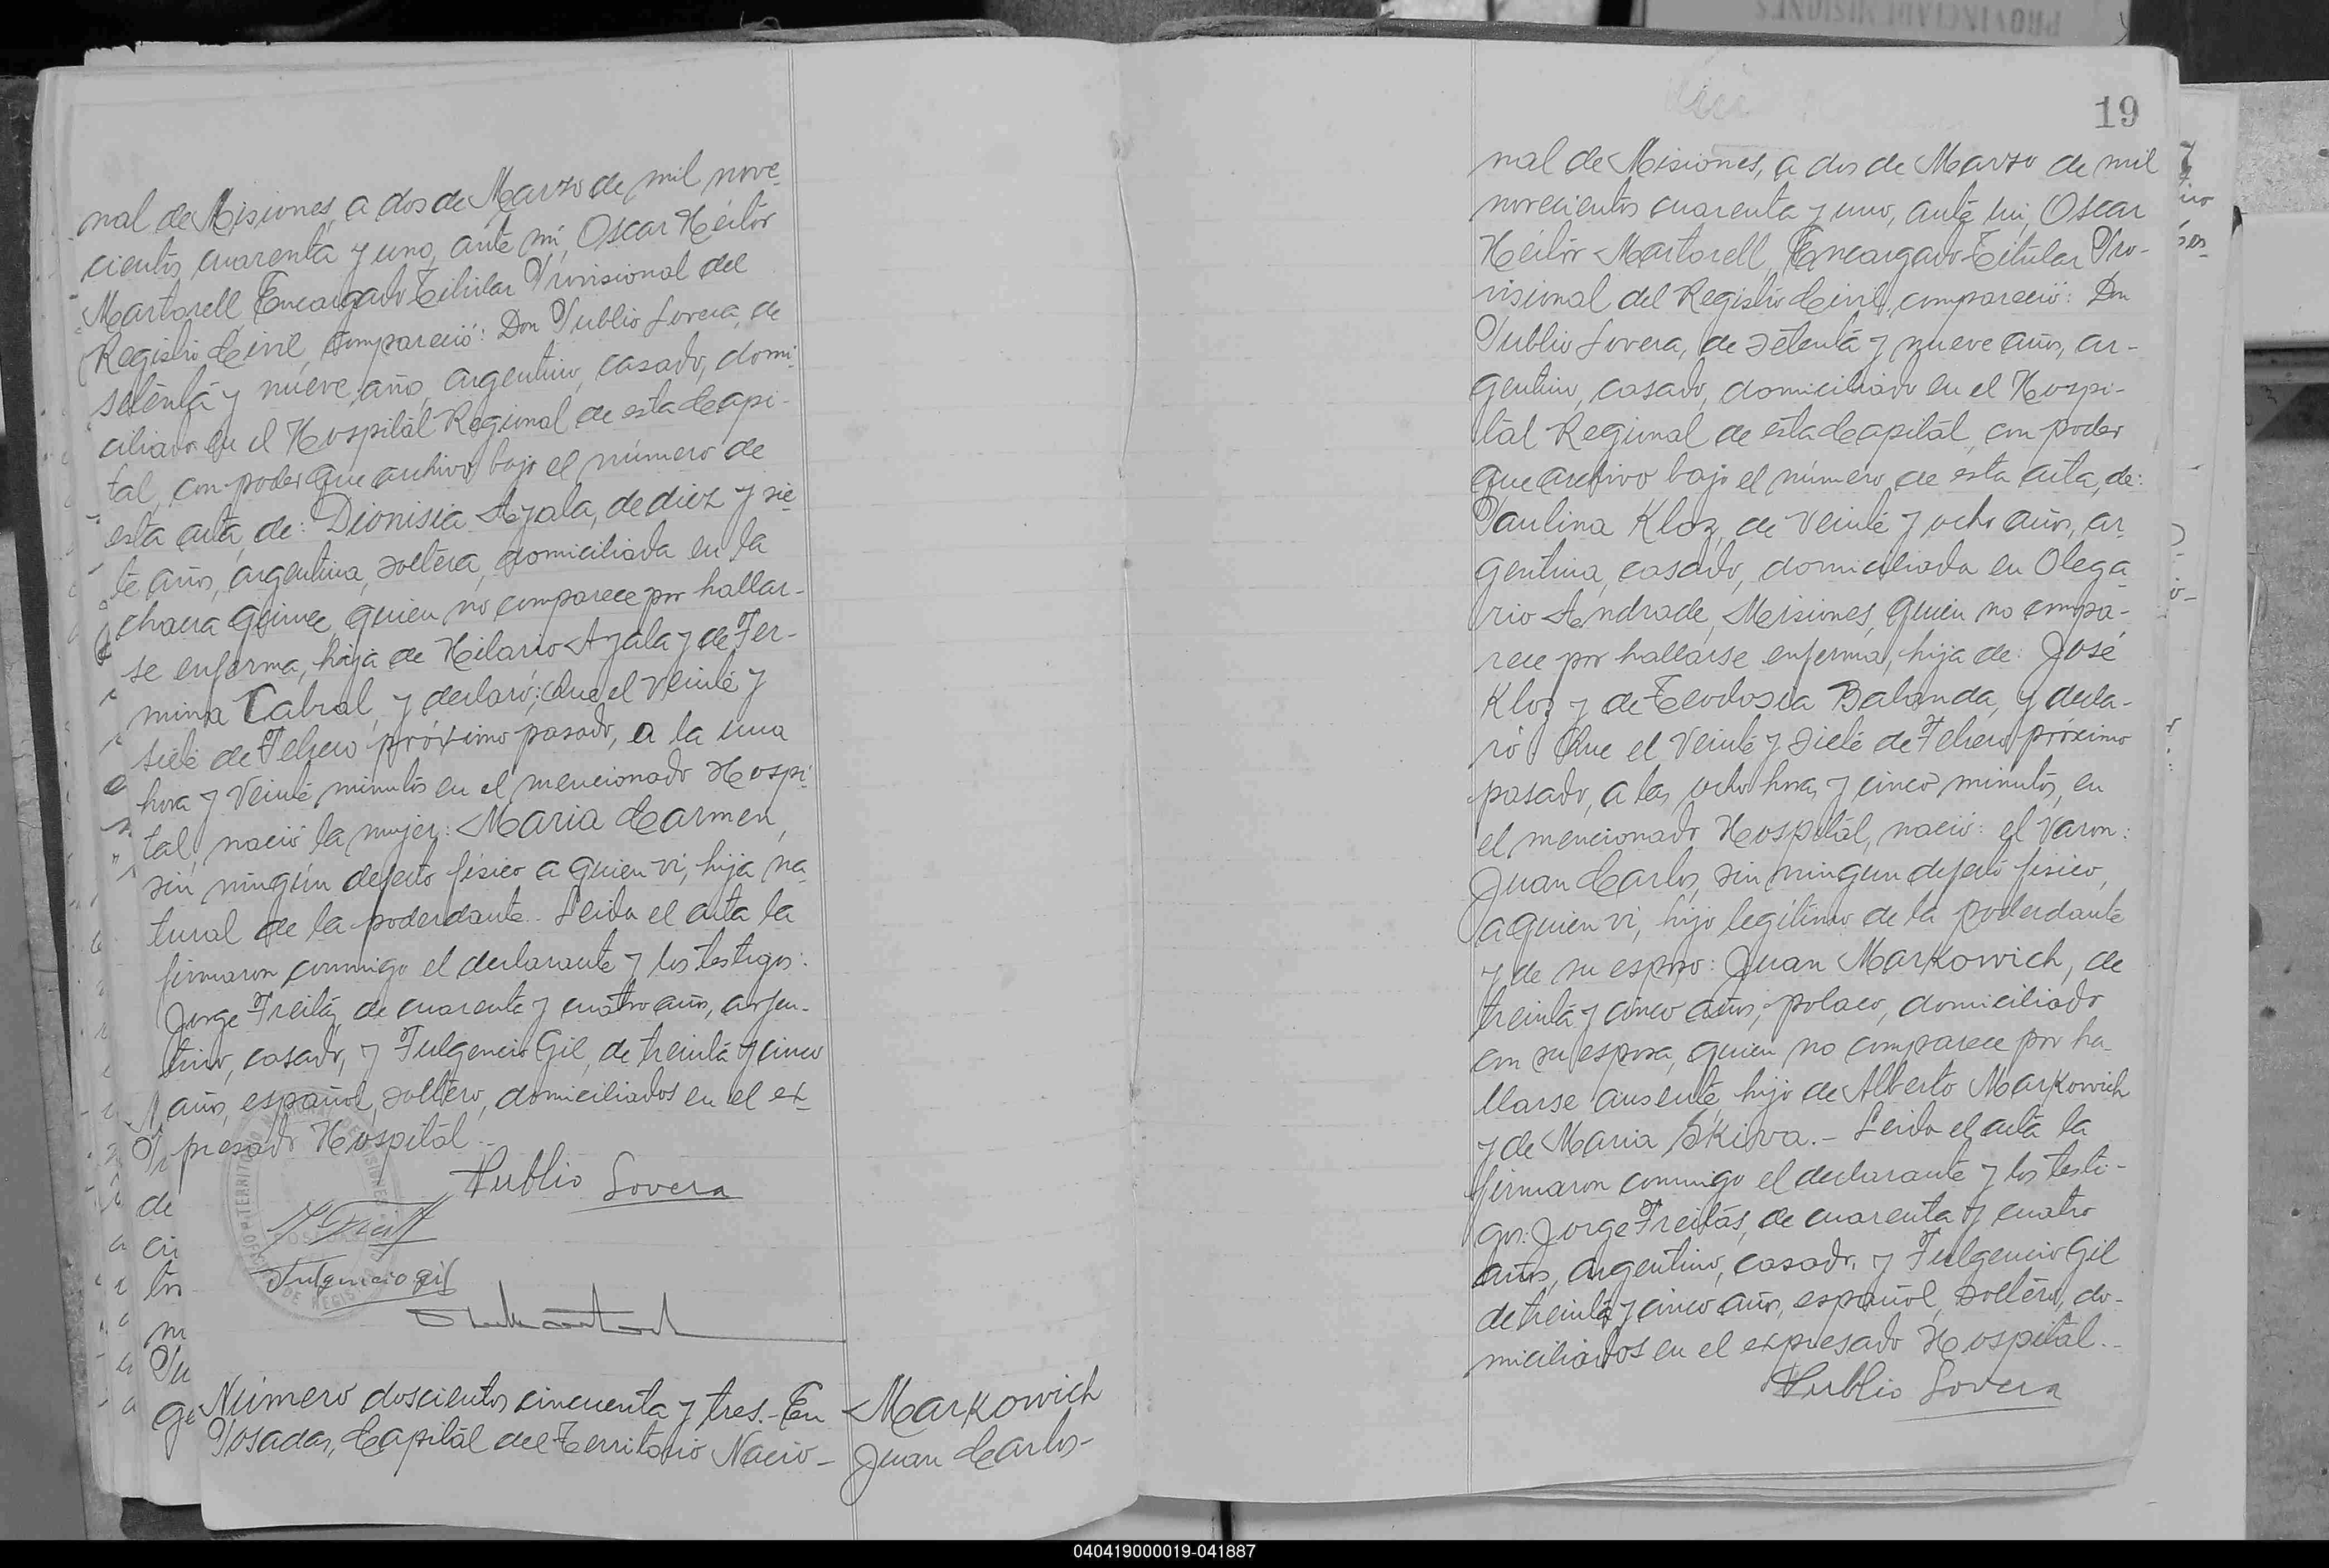 nal de Misiones, a dos de Marzo de mil nove-
cientos cuarenta y uno, ante mí, Oscar Héctor
Martorell, Encargado Titular Provisional del
Registro Civil, compareció: Don Publio Lovera, de
setenta y nueve año, argentino, casado, domi-
ciliado en el Hospital Regional de esta Capi-
tal, con poder que archivo bajo el número de
esta acta, de: Dionisia Ayala, de diez y sie-
te años, argentina, soltera, domiciliada en la
chacra quince, quien no comparece por hallar-
se enferma, hija de Hilario Ayala y de Fer-
mina Cabral, y declaró; Que el veinte y
siete de Febrero próximo pasado, a la una
hora y veinte minutos en el mencionado Hospi-
tal, nació la mujer: Maria Carmen,
sin ningún defecto físico a quien vi, hija na-
tural de la poderdante.- Leida el acta la
firmaron conmigo el declarante y los testigos:
Jorge Freitas, de cuarenta y cuatro años, argen-
tino, casado, y Fulgencio Gil, de treinta y cinco
años, español, soltero, domiciliados en el ex-
presado Hospital.-
Publio Lovera
Fulgencio gil
Número doscientos cincuenta y tres.- En
Posadas, Capital del Territorio Nacio-
Markowich
Juan Carlos-
19
nal de Misiones, a dos de Marzo de mil
novecientos cuarenta y uno, ante mí, Oscar
Héctor Martorell, Encargado Titular Pro-
visional del Registro Civil, compareció: Don
Publio Lovera, de setenta y nueve años, ar-
gentino, casado, domiciliado en el Hospi-
tal Regional de esta Capital, con poder
que archivo bajo el número de esta acta, de:
Paulina Kloz, de veinte y ocho años, ar-
gentina, casada, domiciliada en Olega-
rio Andrade, Misiones, quien no compa-
rece por hallarse enferma, hija de: José
Kloz y de Teodosia Balanda, y decla-
ró: Que el veinte y siete de Febrero próximo
pasado, a las ocho horas y cinco minutos, en
el mencionado Hospital, nació: el varon:
Juan Carlos, sin ningun defecto físico,
a quien vi, hijo legítimo de la poderdante
y de su esposo: Juan Markowich, de
treinta y cinco años, polaco, domiciliado
con su esposa, quien no comparece por ha-
llarse ausente, hijo de Alberto Markowich
y de Maria Skiva.- Leida el acta la
firmaron conmigo el declarante y los testi-
gos: Jorge Freitas, de cuarenta y cuatro
años, argentino, casado, y Fulgencio Gil
de treinta y cinco años, español, soltero, do-
miciliados en el expresado Hospital.-
Publio Lovera
040419000019-041887